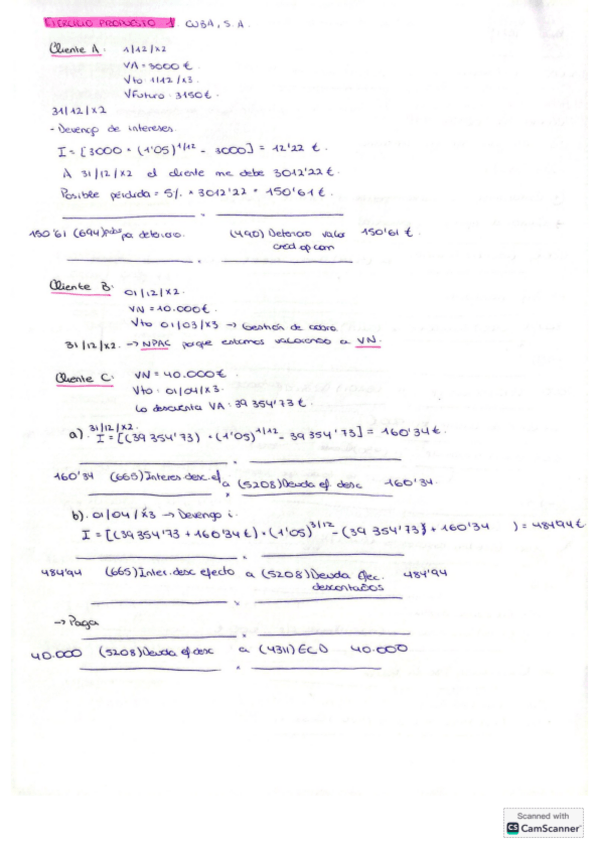 EJERCICIO PROPUESTO 1. CUBA, S.A.
Cliente A: 1/12/x2
VA = 3000 €
Vto 1/12/x3.
VFuturo: 3150 €.
31/12/x2
- Devengo de intereses.
I = [3000 * (1'05)^1/12 - 3000] = 12'22 €.
A 31/12/x2 el cliente me debe 3012'22 €.
Posible pérdida = 5% * 3012'22 = 150'61 €.
150'61 (694) pa deterioro. (490) Deterioro valor 150'61 €.
cred op com
Cliente B: 01/12/x2.
VN = 10.000 €.
Vto 01/03/x3 → Gestión de cobro.
31/12/x2. → NPAC porque estamos valorando a VN.
Cliente C: VN = 40.000 €.
Vto: 01/04/x3.
Lo descuenta VA: 39 354'73 €
31/12/x2.
a). I = [(39 354'73) * (1'05)^1/12 - 39 354'73] = 160'34 €.
160'34 (665) Interes desc. ef a (5208) Deuda ef. desc 160'34.
b). 01/04/x3 → Devengo i.
I = [(39 354'73 + 160'34 €) * (1'05)^3/12 - (39 354'73) + 160'34 ) = 484'94 €.
484'94 (665) Inter. desc efecto a (5208) Deuda Efec. 484'94
descontados
→ Paga
40.000 (5208) Deuda ef desc a (4311) ECD 40.000
Scanned with
CS CamScanner